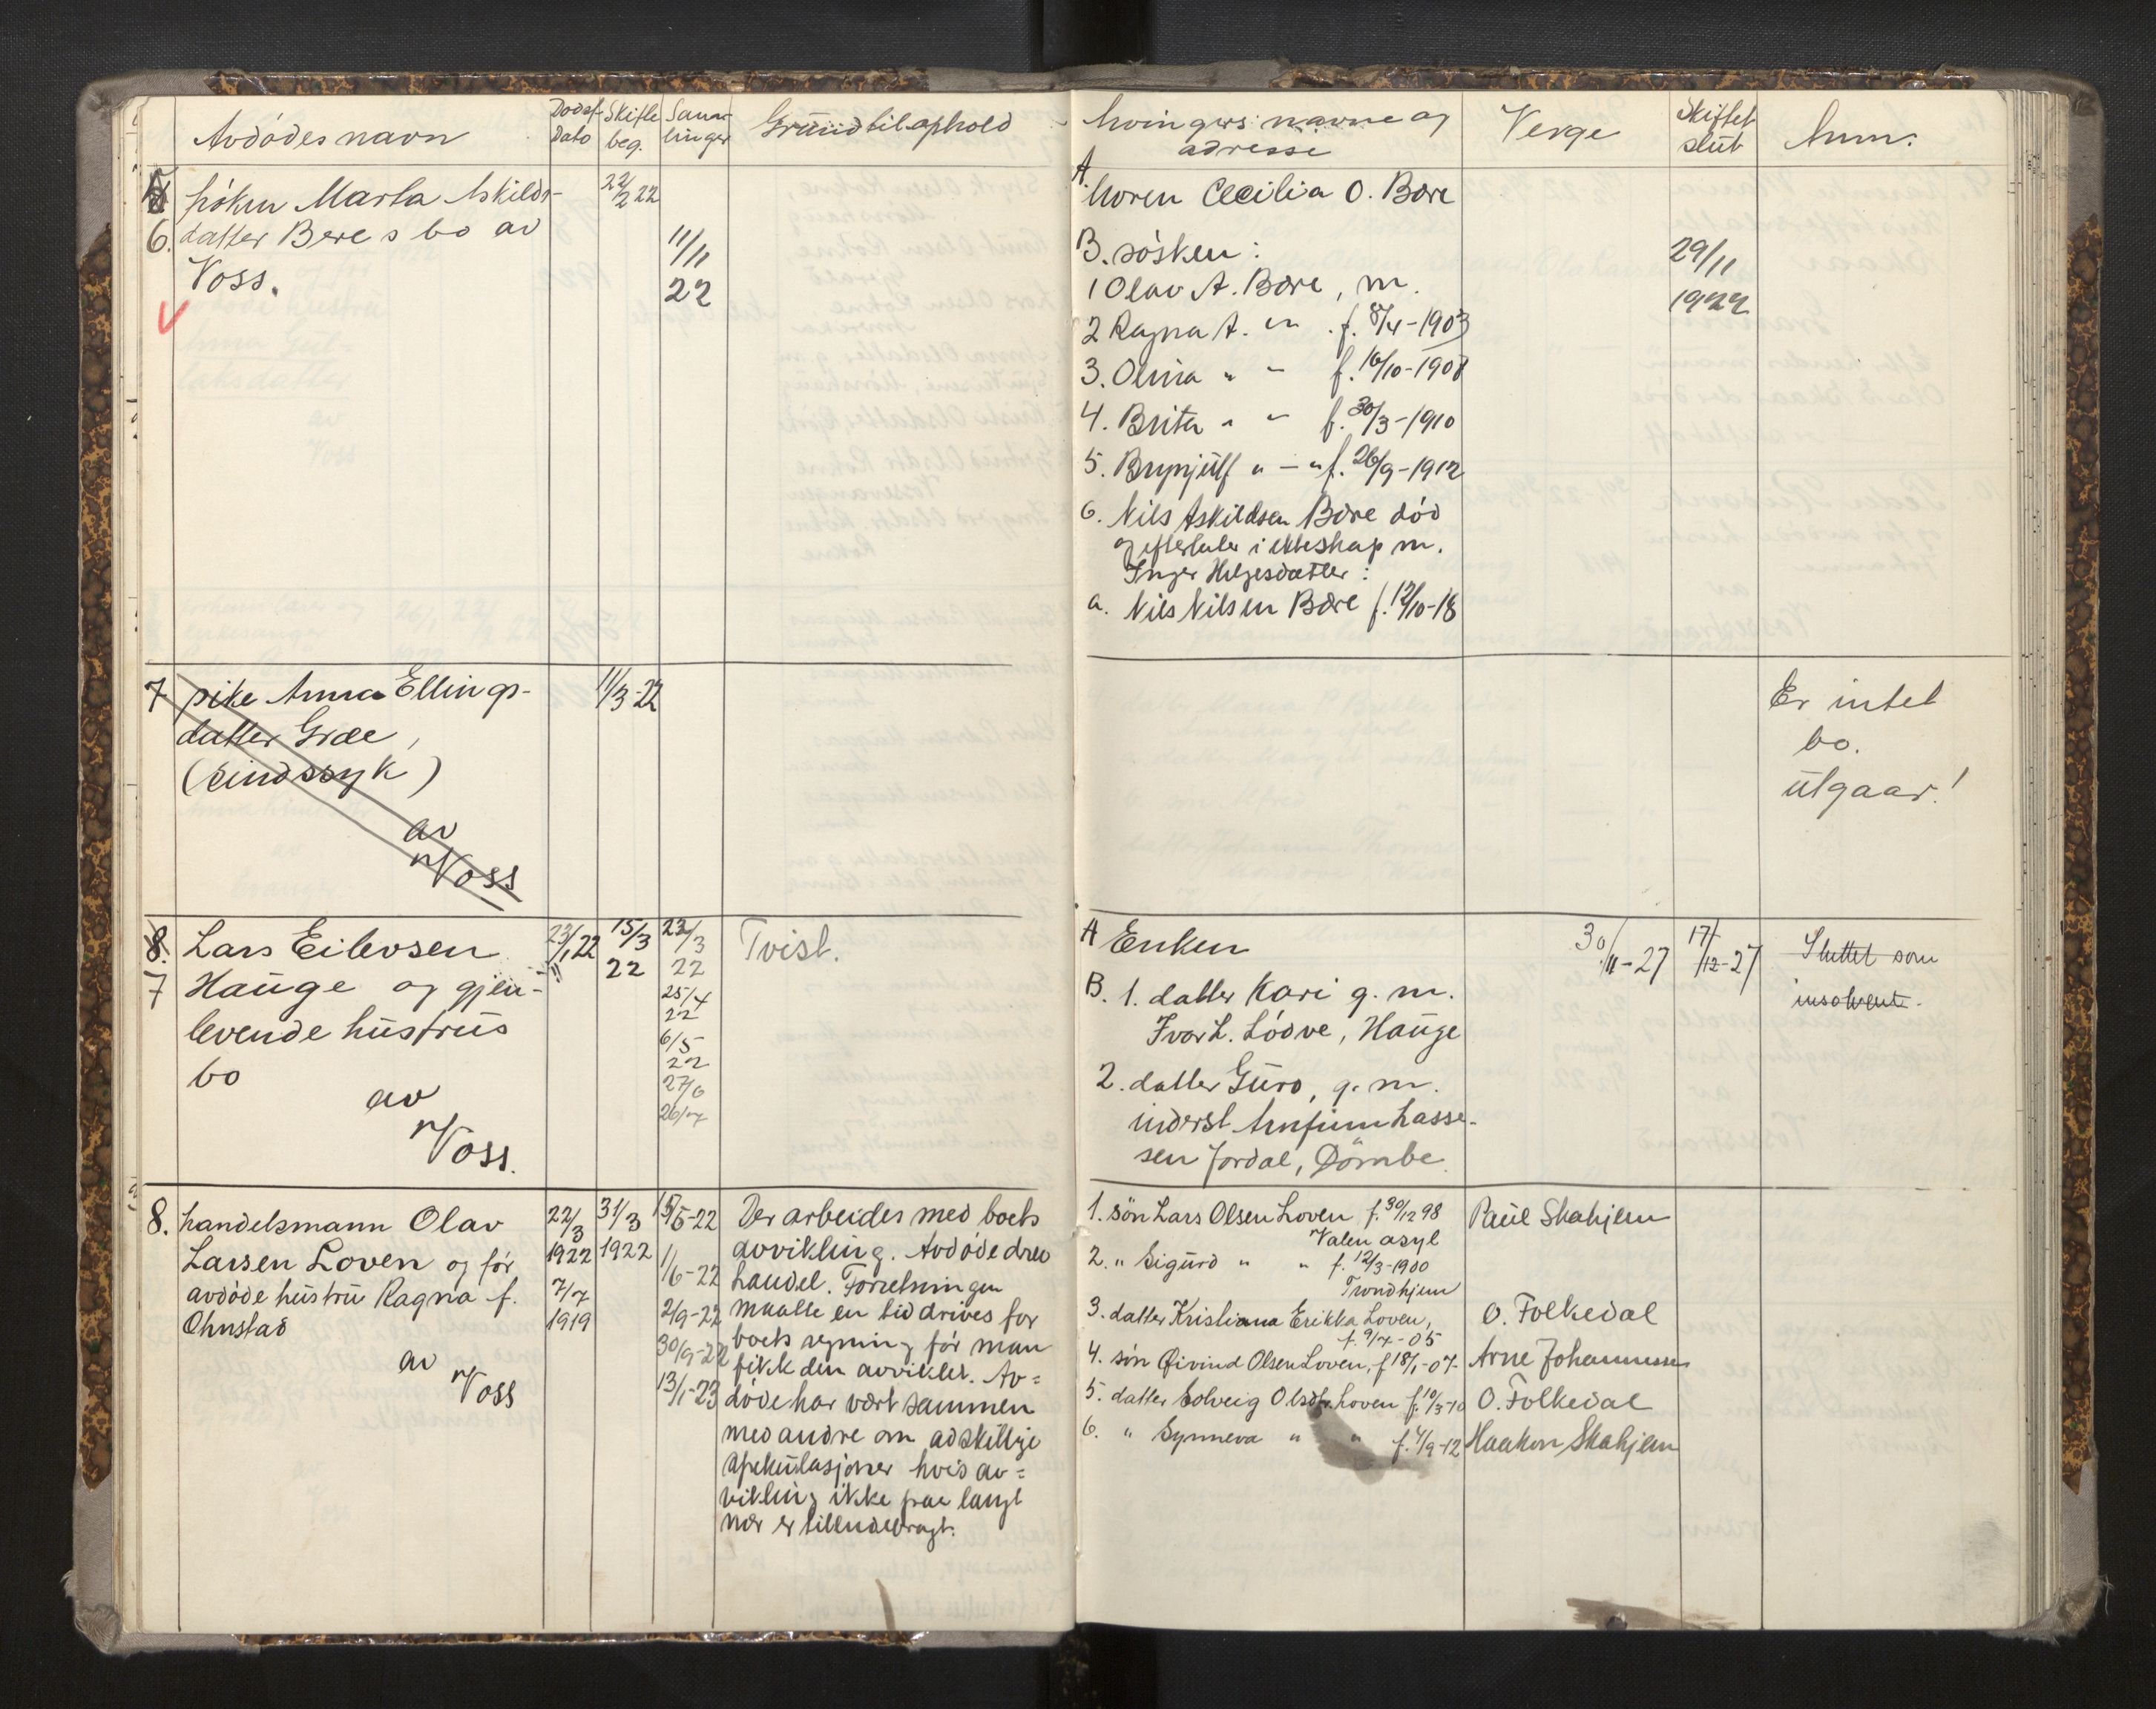 Avdödes navn
Dödsf. dato
Skifte beg.
Sam-linger
Grund til ophold
Arvingers navne og adresse
Verge
Skiftet slut
Anm.
6. fröken Marta Askilds-
datter Bere s bo av
Voss.
22/2 22
11/11
22
A. Moren Cecilia O. Bære
B. søsken:
1 Olav A. Bære, m.
2 Ragna A. " f. 8/4-1903
3. Olina " " f. 16/10-1908
4. Brita " " f. 30/3-1910
5. Brynjulf " — " f. 26/9-1912
6. Nils Askildsen Bære død
og efterlater i ekteskap m.
Inger Helgesdatter:
a. Nils Nilsen Bære f. 12/10-18
29/11
1922
7 pike Anna Ellings-
datter Græe,
(sindssyk)
av
Voss
11/3-22
Er intet
bo.
utgaar!
8. Lars Eilevsen
7 Hauge og gjen-
levende hustrus
bo
av
Voss.
23/1 22
15/3
22
22/3
22
25/4
22
6/5
22
27/6
26/7
Tvist.
A Enken
B. 1. datter Kari g. m.
Ivar L. Lödve, Hauge
2. datter Guro, g. m.
inderst Arnfinn Lasse-
sen Jordal, Dömbe
30/11-27
17/12-27
Sluttet som
insolvent.
8. handelsmann Olav
Larsen Loven og før
avdøde hustru Ragna f.
Ohnstad
av
Voss
22/3
1922
7/7
1919
31/3
1922
15/5-22
1/6-22
2/9-22
30/9-22
13/1-23
Der arbeides med boets
avvikling. Avdøde drev
handel. Forretningen
maatte en tid drives for
boets regning før man
fikk den avviklet. Av=
døde har vært sammen
med andre om adskillige
spekulasjoner hvis av=
vikling ikke paa langt
nær er tilendebragt.
1. sön Lars Olsen Loven f. 30/12 98
Valen asyl
2. " Sigurd " " f. 12/3-1900
Trondhjem
3. datter Kristiana Erikka Loven,
f. 9/7-05
4. søn Øivind Olsen Loven, f 18/1-07-
5. datter Solveig Olsdtr. Loven f. 10/3-10
6. " Synneva " " f. 4/9-12
Paul Skahjem
O. Folkedal
Arne Johannessen
O. Folkedal
Haakon Skahjem